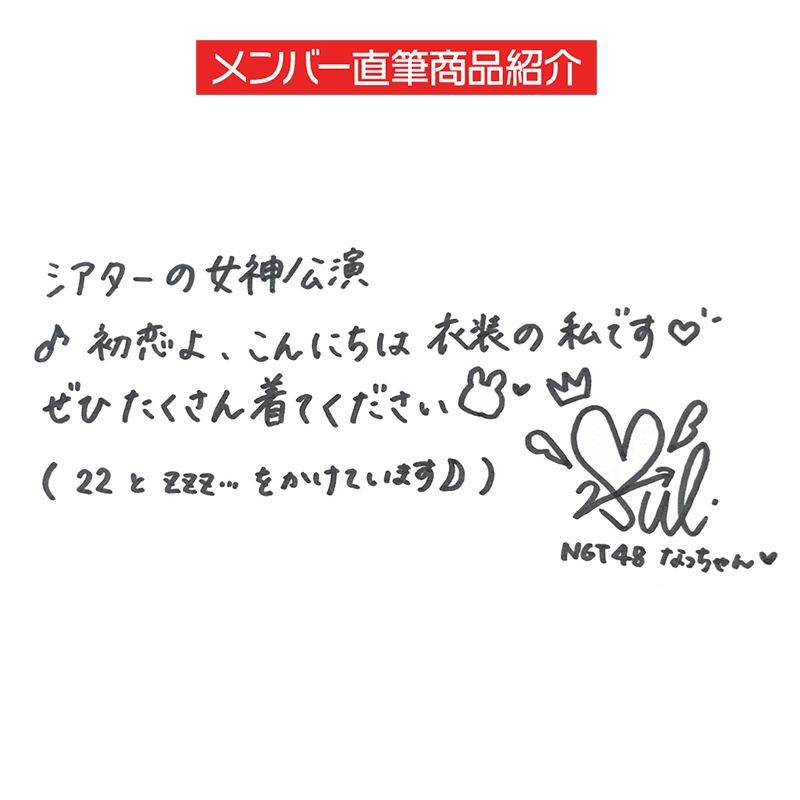 メンバー直筆商品紹介
シアターの女神公演
♪ 初恋よ、こんにちは 衣装の私です♡
ぜひたくさん着てください
( 22 と zzz… をかけています )
NGT48 なっちゃん♥